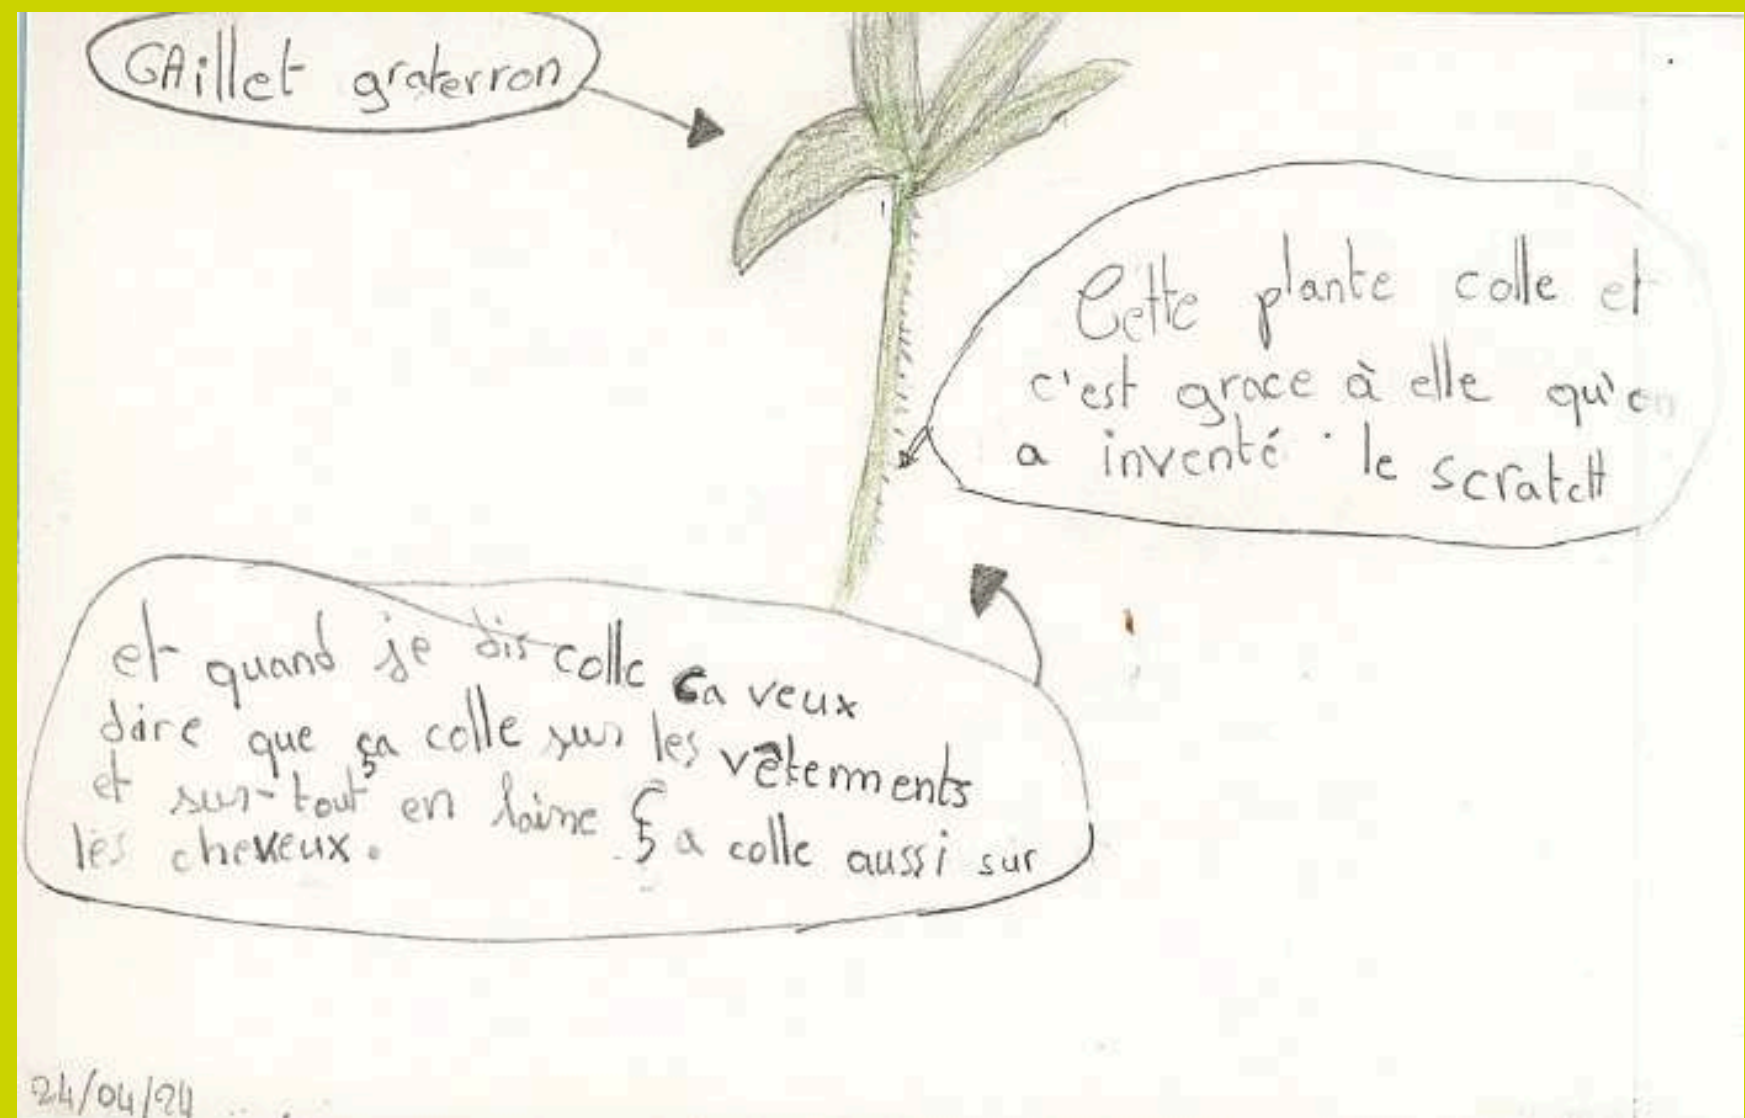 GAillet graterron
Cette plante colle et
c'est grace à elle qu'on
a inventé le scratch
et quand je dis colle ça veux
dire que ça colle sur les vêtements
et sur-tout en laine ça colle aussi sur
les cheveux.
24/04/24